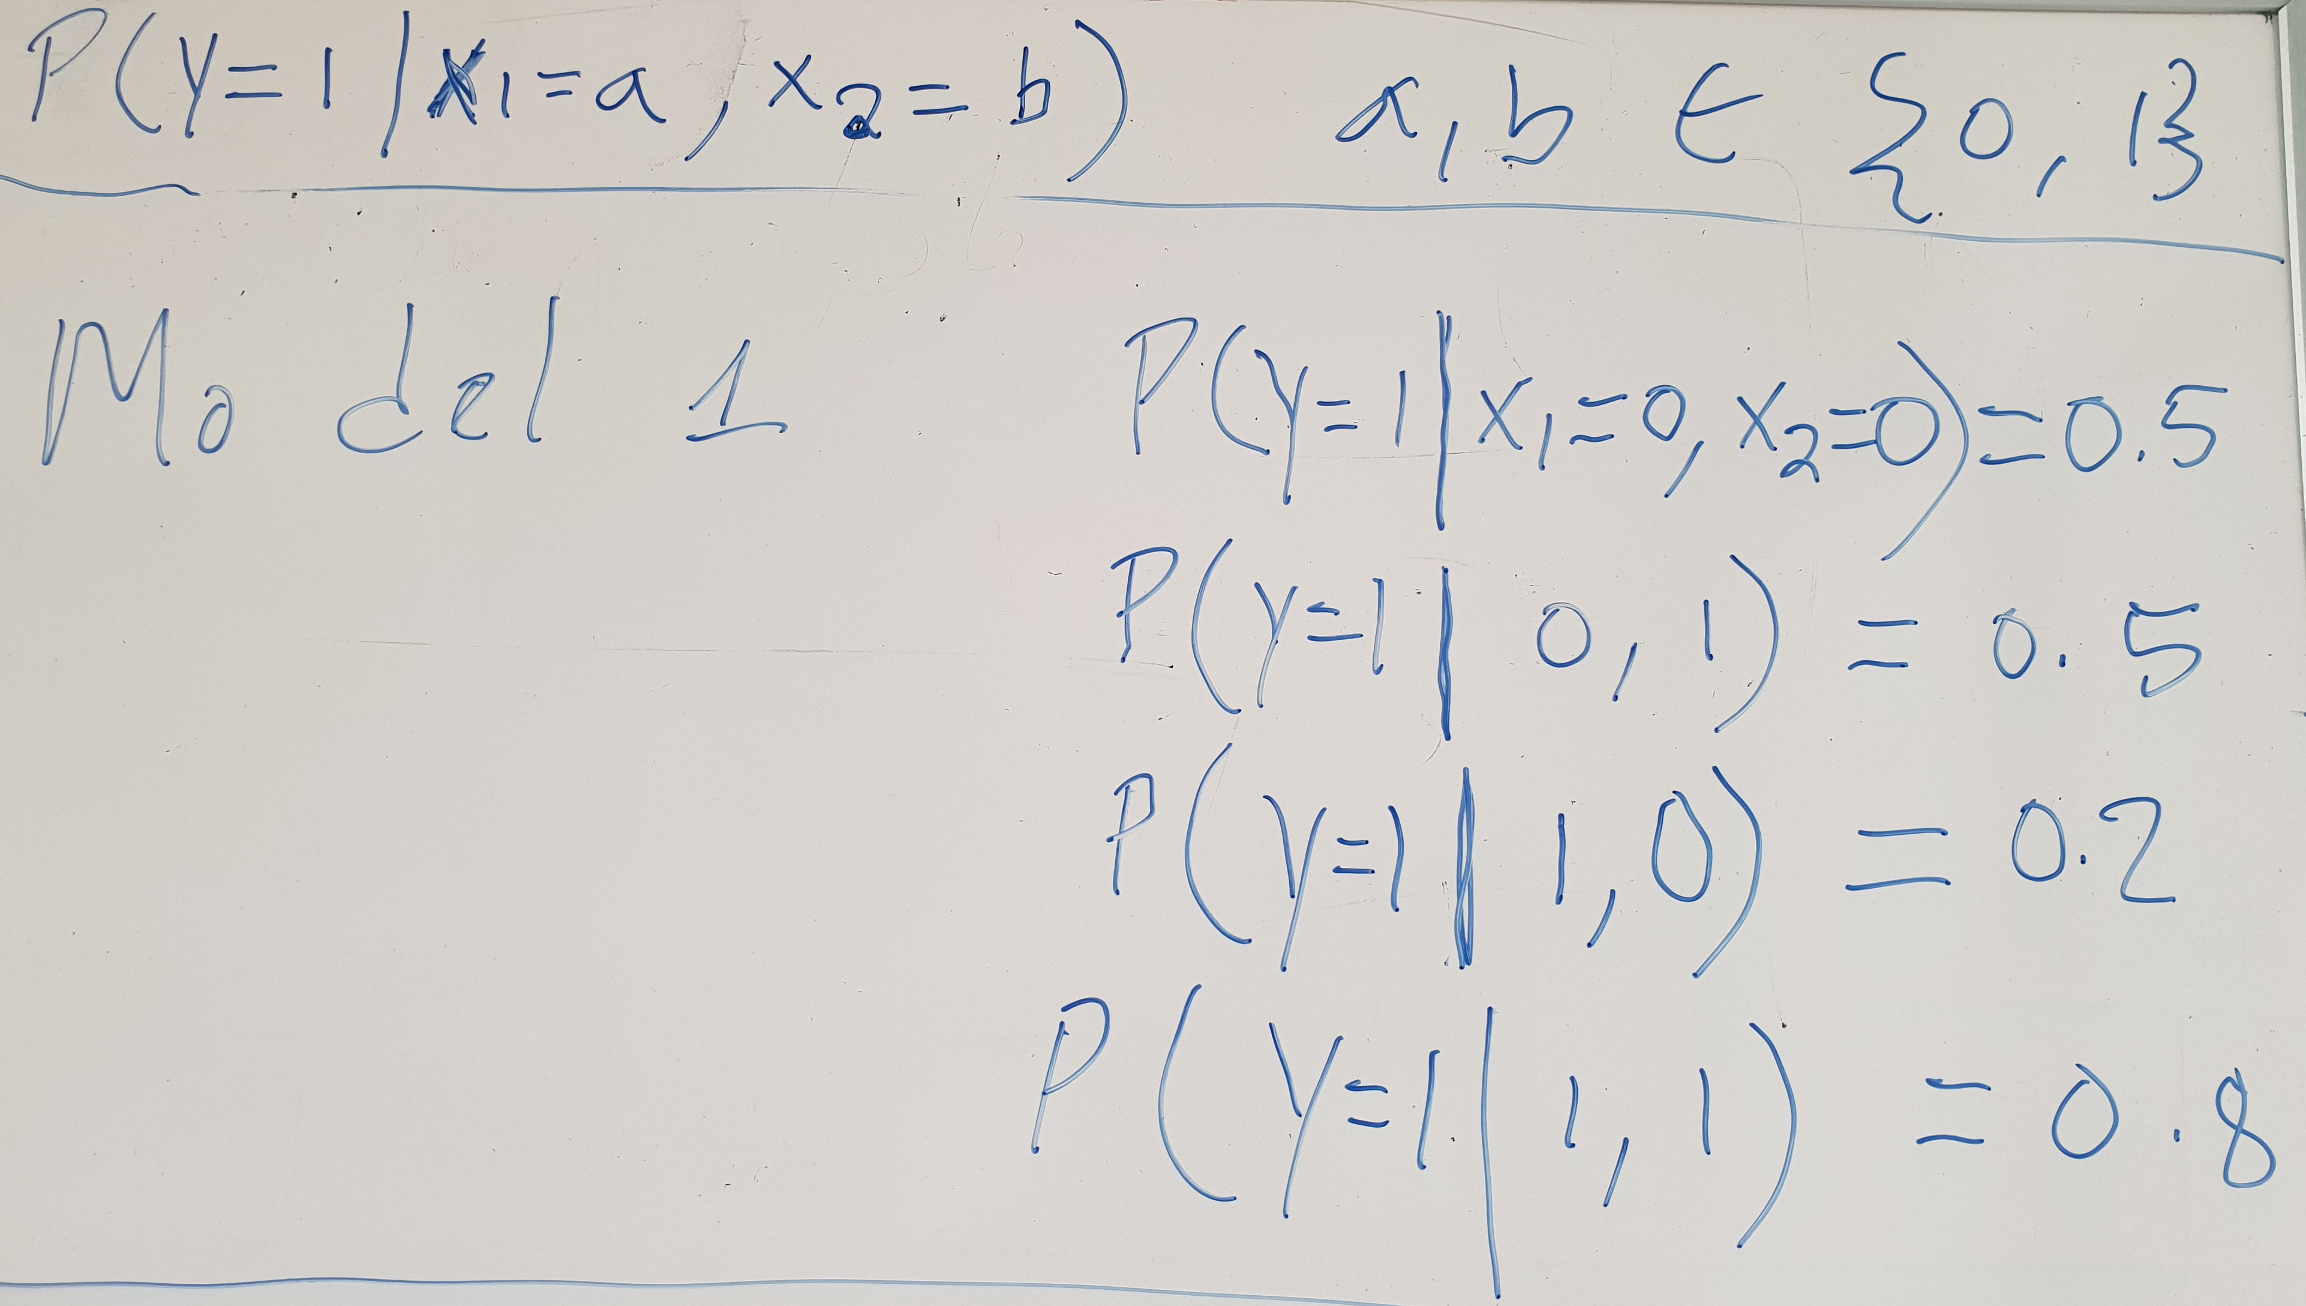 P(Y=1|X1=a, x2=b) a,b ∈ {0,1}
Model 1 P(Y=1|x1=0, x2=0)=0.5
P(Y=1| 0, 1) = 0.5
P(Y=1| 1,0) = 0.2
P(Y=1| 1, 1) = 0.8